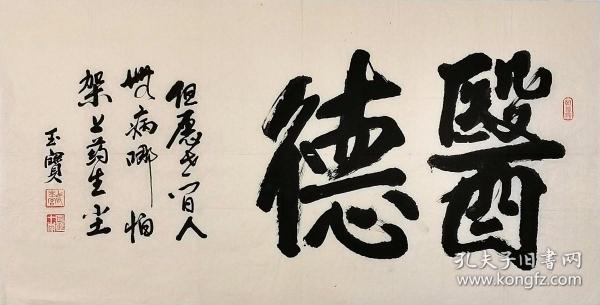 醫德
但愿世間人
無病哪怕
架上药生尘
玉寶
孔夫子旧书网
www.kongfz.com